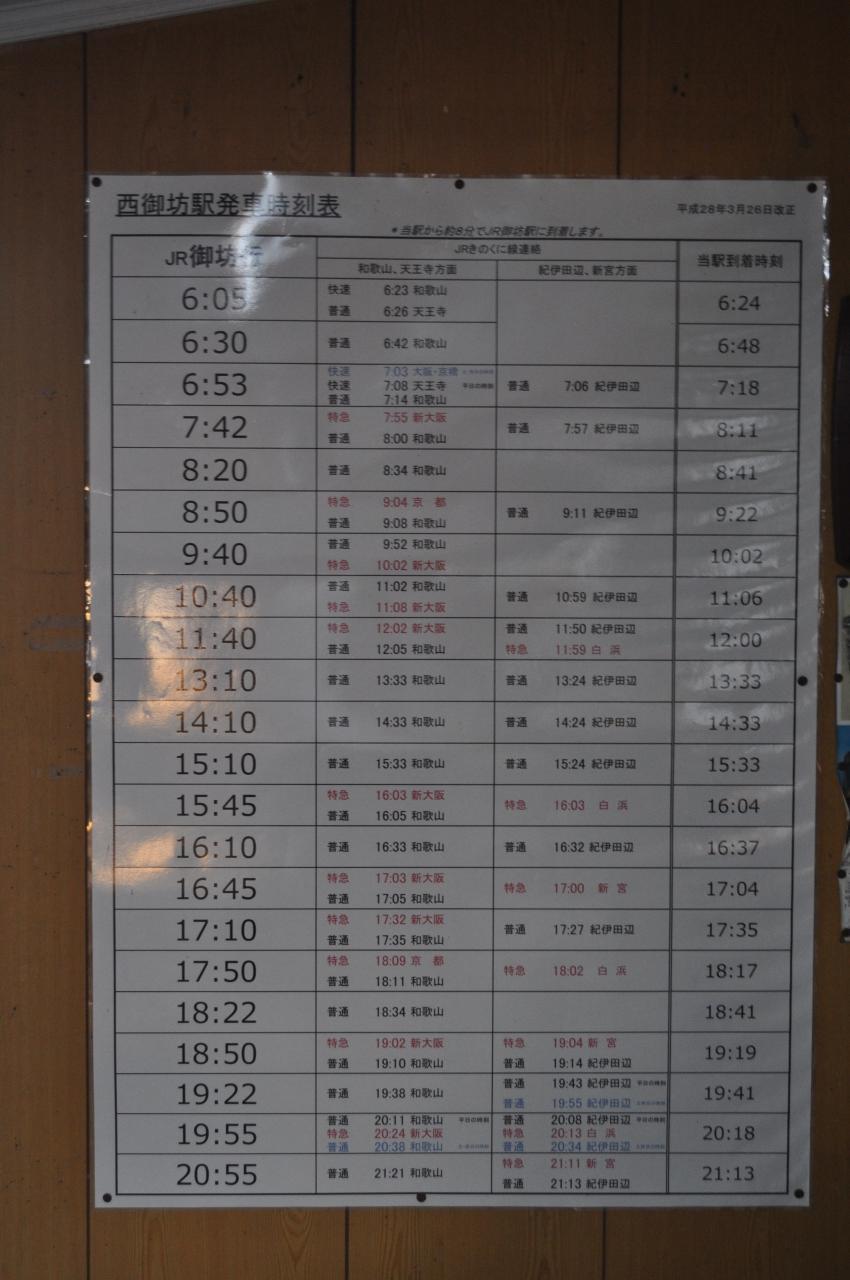 西御坊駅発車時刻表
平成28年3月26日改正
*当駅から約8分でJR御坊駅に到着します。
JR御坊行 JRきのくに線連絡 当駅到着時刻
和歌山、天王寺方面 紀伊田辺、新宮方面
6:05 快速 6:23 和歌山 6:24
普通 6:26 天王寺
6:30 普通 6:42 和歌山 6:48
快速 7:03 大阪・京橋
6:53 快速 7:08 天王寺 平日の時刻 普通 7:06 紀伊田辺 7:18
普通 7:14 和歌山
7:42 特急 7:55 新大阪 普通 7:57 紀伊田辺 8:11
普通 8:00 和歌山
8:20 普通 8:34 和歌山 8:41
8:50 特急 9:04 京 都 普通 9:11 紀伊田辺 9:22
普通 9:08 和歌山
9:40 普通 9:52 和歌山 10:02
特急 10:02 新大阪
10:40 普通 11:02 和歌山 普通 10:59 紀伊田辺 11:06
特急 11:08 新大阪
11:40 特急 12:02 新大阪 普通 11:50 紀伊田辺 12:00
普通 12:05 和歌山 特急 11:59 白 浜
13:10 普通 13:33 和歌山 普通 13:24 紀伊田辺 13:33
14:10 普通 14:33 和歌山 普通 14:24 紀伊田辺 14:33
15:10 普通 15:33 和歌山 普通 15:24 紀伊田辺 15:33
15:45 特急 16:03 新大阪 特急 16:03 白 浜 16:04
普通 16:05 和歌山
16:10 普通 16:33 和歌山 普通 16:32 紀伊田辺 16:37
16:45 特急 17:03 新大阪 特急 17:00 新 宮 17:04
普通 17:05 和歌山
17:10 特急 17:32 新大阪 普通 17:27 紀伊田辺 17:35
普通 17:35 和歌山
17:50 特急 18:09 京 都 特急 18:02 白 浜 18:17
普通 18:11 和歌山
18:22 普通 18:34 和歌山 18:41
18:50 特急 19:02 新大阪 特急 19:04 新 宮 19:19
普通 19:10 和歌山 普通 19:14 紀伊田辺
19:22 普通 19:38 和歌山 普通 19:43 紀伊田辺 平日の時刻 19:41
普通 19:55 紀伊田辺
普通 20:11 和歌山 平日の時刻 普通 20:08 紀伊田辺 平日の時刻
19:55 特急 20:24 新大阪 特急 20:13 白 浜 20:18
普通 20:38 和歌山 普通 20:34 紀伊田辺
20:55 普通 21:21 和歌山 特急 21:11 新 宮 21:13
普通 21:13 紀伊田辺